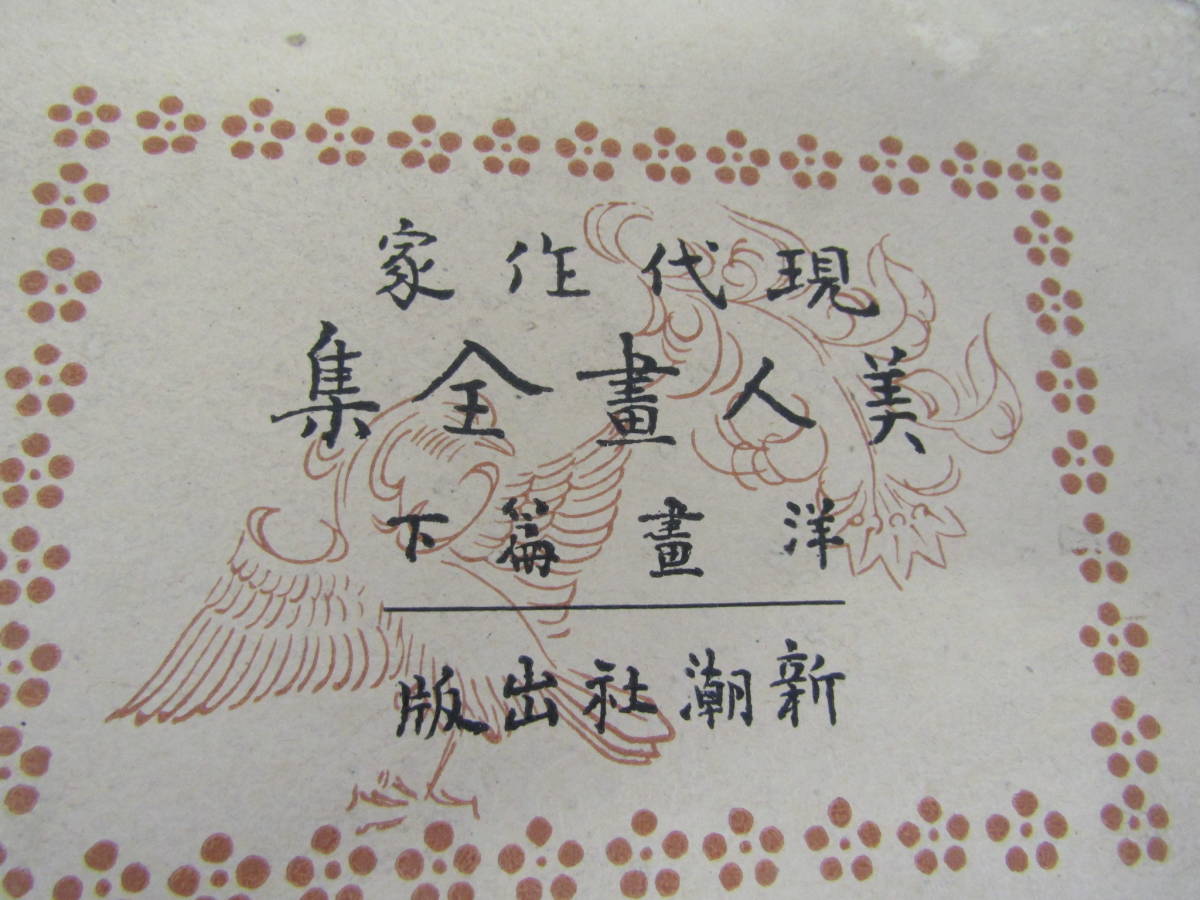 現代作家
美人畫全集
洋畫篇下
新潮社出版